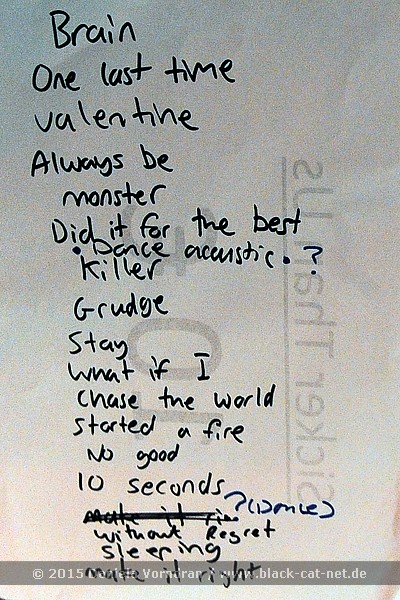 Brain
One last time
valentine
Always be
monster
Did it for the best
• Dance acoustic. ?
Killer
Grudge
Stay
What if I
Chase the world
Started a fire
No good
10 seconds
make it ri ? (Dance)
without Regret
Sleeping
make it right
Sicker Than Us
© 2015 Daniele Vorndran ~ www.black-cat-net.de